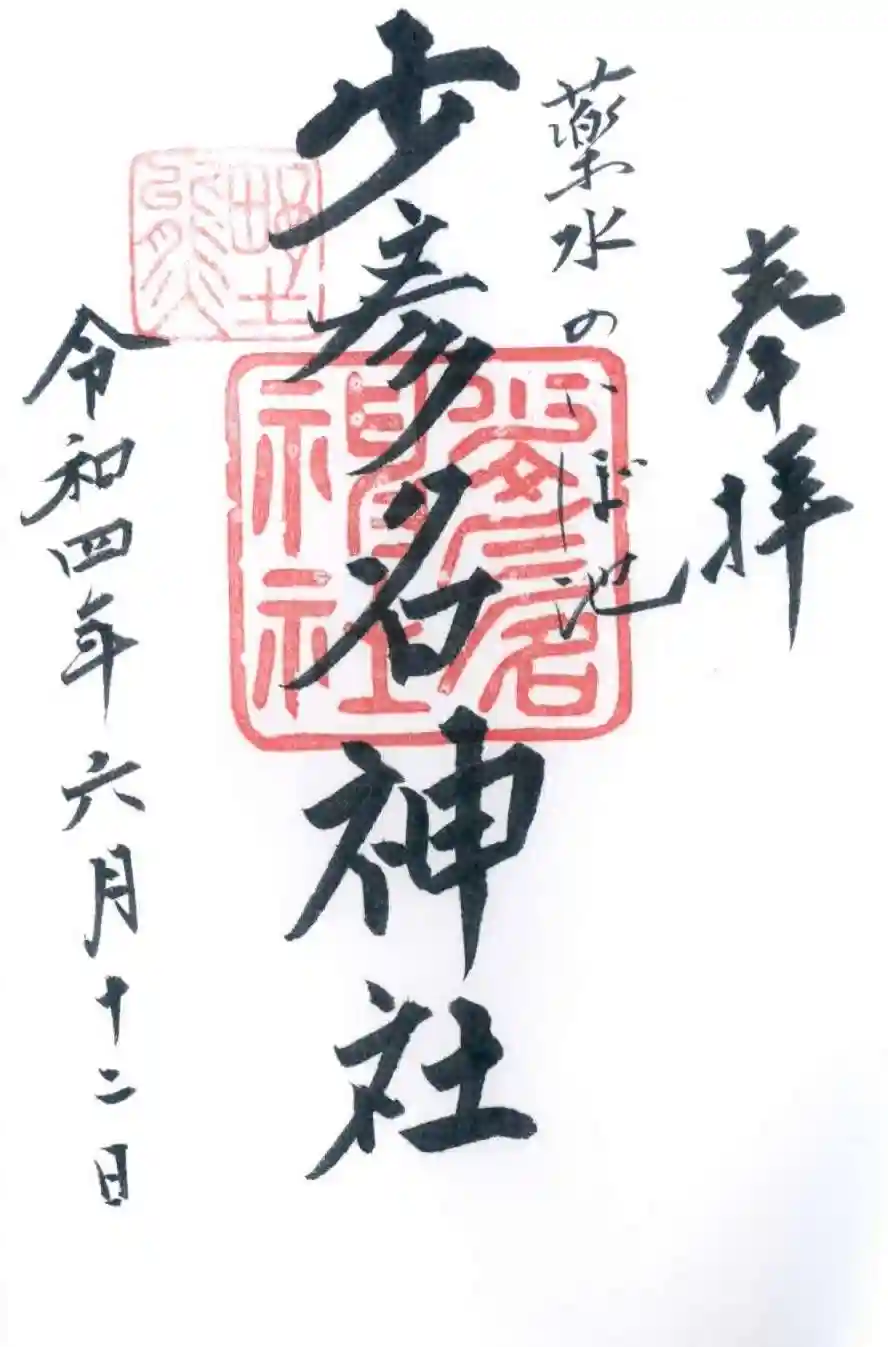 奉拝
薬水のいぼ池
少彦名神社
少彦名
神社
令和四年六月十二日